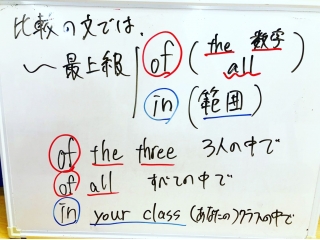 比較の文では、
〜最上級 of (the 数字
all)
in (範囲)
of the three 3人の中で
of all すべての中で
in your class (あなたの)クラスの中で